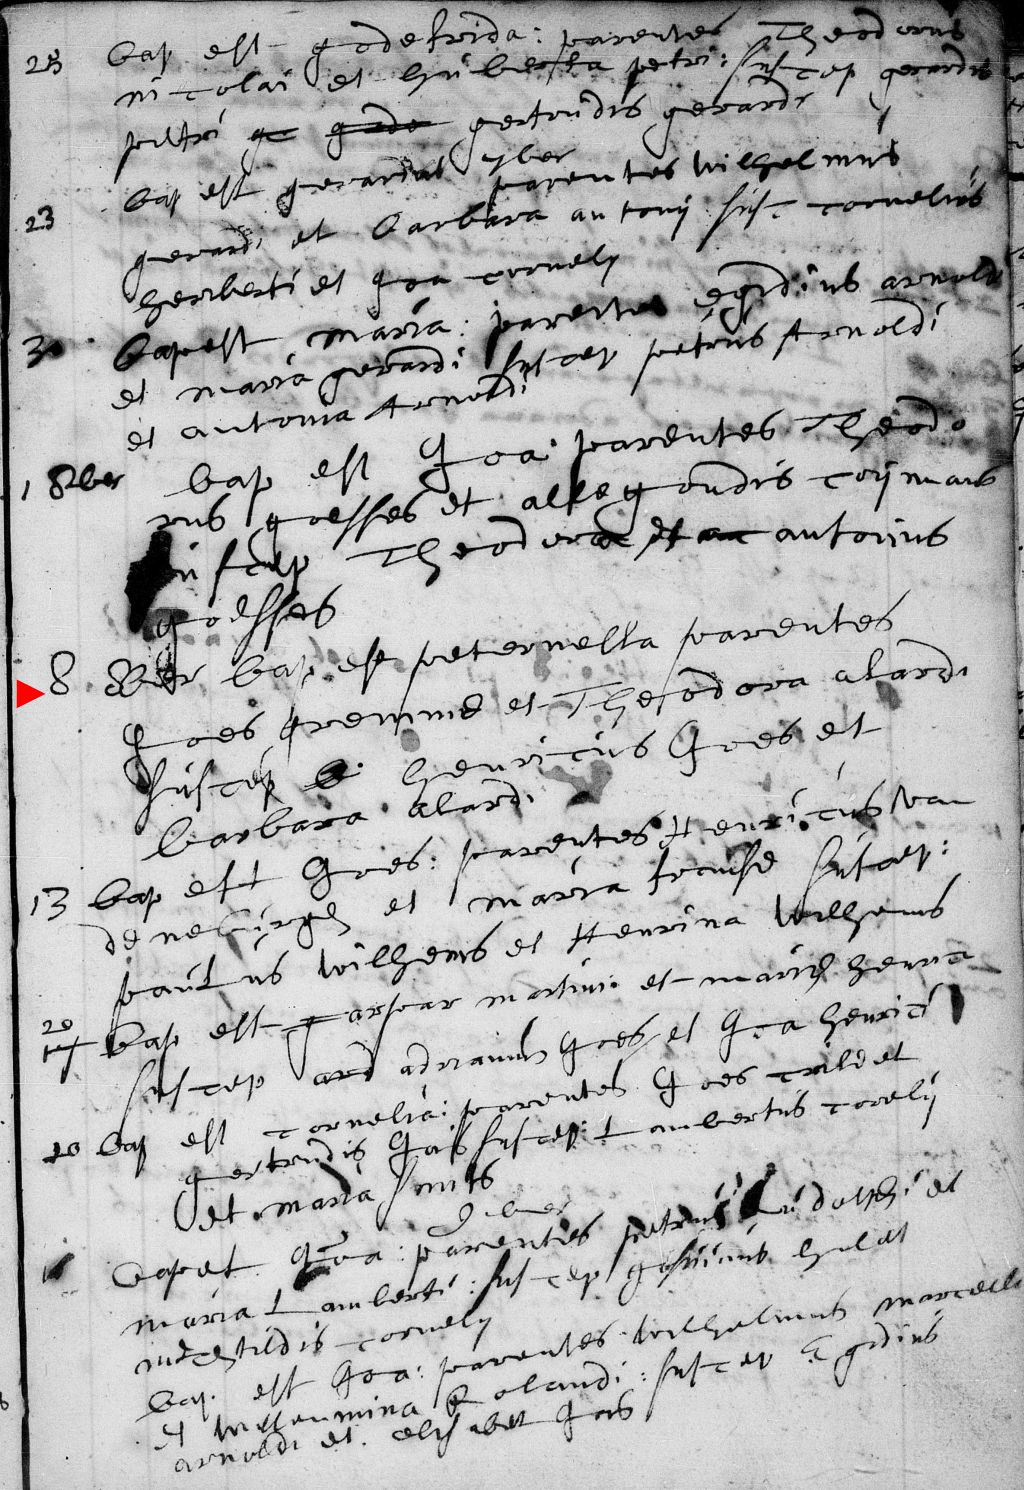 28 bap est godefrida: parentes Theodorus
nicolai et huberta petri: suscep gerardus
petri gertrudis gerardi
7ber
bap est gerardus parentes Wilhelmus
23 gerardi et barbara antonij susc cornelius
herberti et Goa cornely
30 bap est maria: parentes egidius arnoldi
et maria gerardi suscep petrus Arnoldi
et antonia Arnoldi
1 8ber bap est Goa: parentes Theodo
rus goesses et allegondis coijmans
suscep Theodor et antonius
goesses
8 8ber bap est peternella parentes
Goes et Theodora alardi
suscep henricus Goes et
barbara alardi
13 bap est Goes: parentes Henricus van
de et maria franse suscep:
paulus wilhems et Henrina Wilhems
20
17 bap est parentes martini et henrica
suscep adrianus Goes et Goa henrici
20 bap est cornelia: parentes Goes et
gertrudis Gois suscep: Lambertus corelij
et maria smits
9ber
bap et Goa: parentes petrus Ludolphi et
maria Lamberti: suscep et
mechtildis cornely
bap. est Goa: parentes Wilhelmus marcelli
et Willemmina Rolandi: suscep Egidius
arnoldi et elisabet Gois